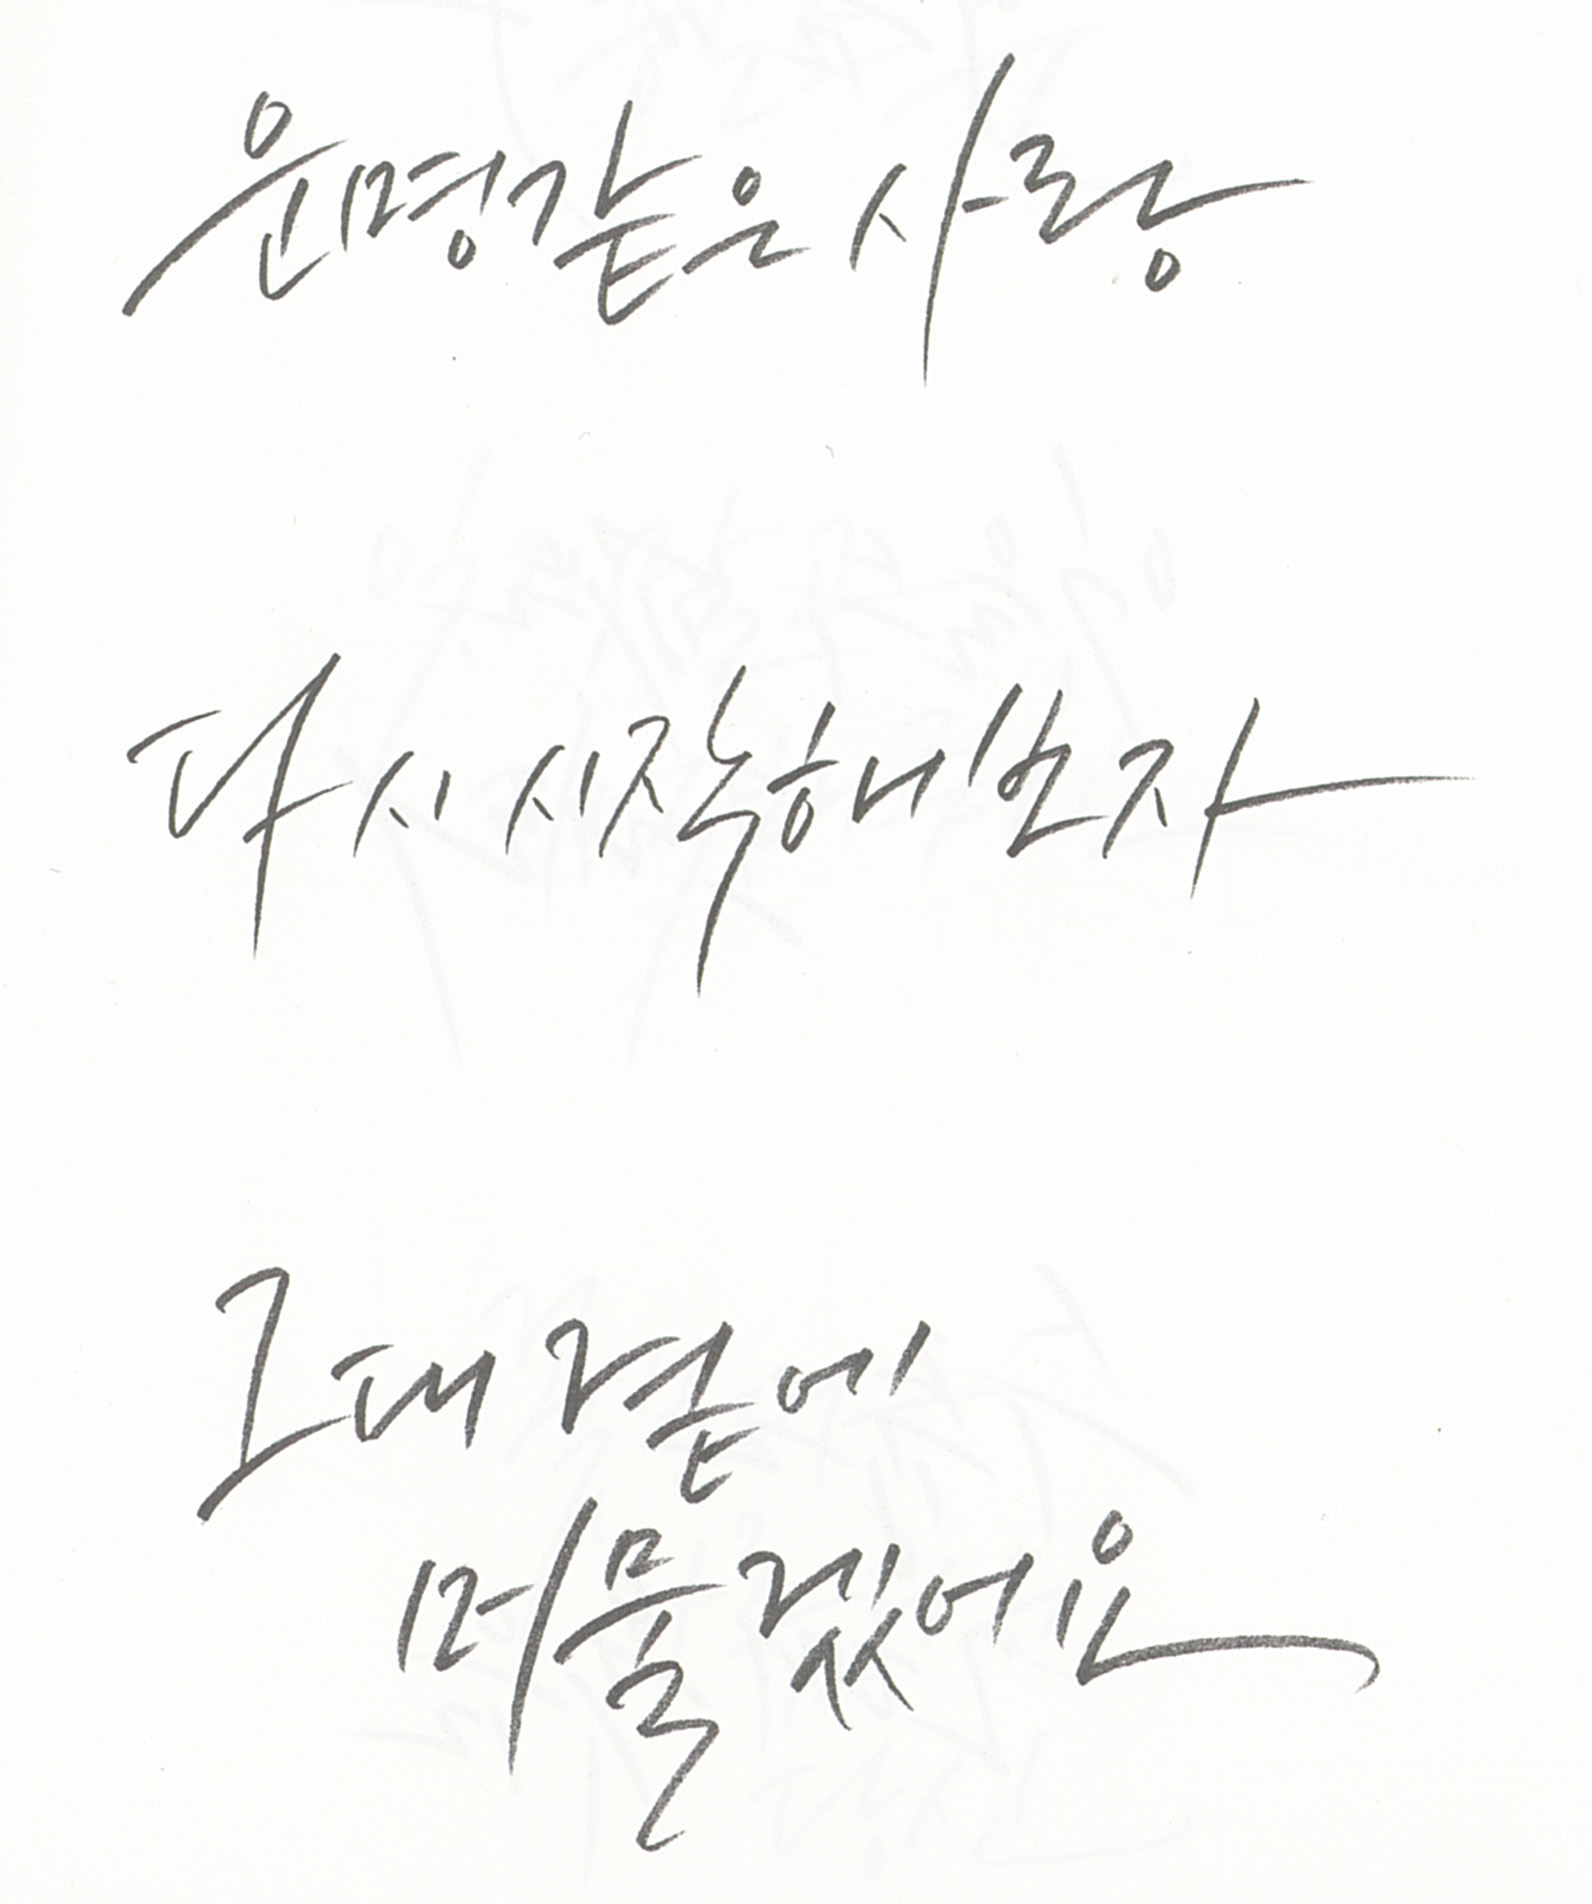 운명같은 사랑
다시 시작해보자
그대 곁에
머물겠어요